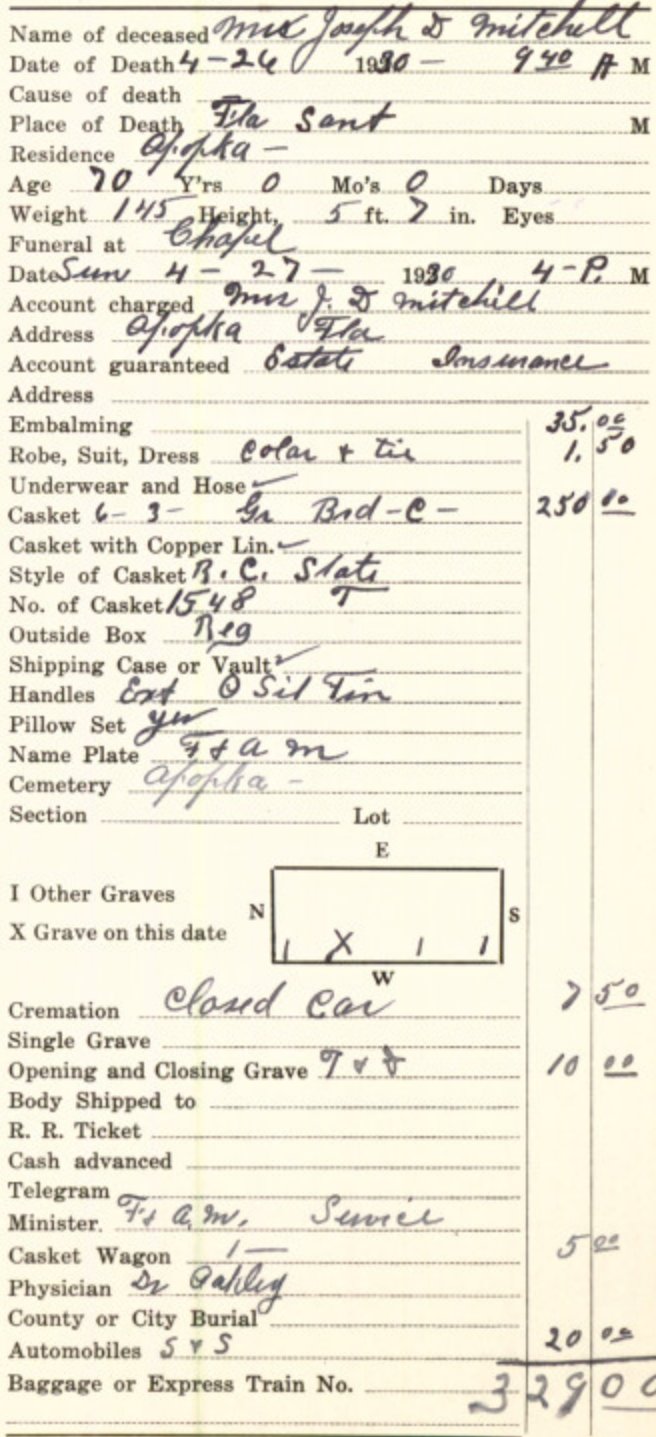 Name of deceased Mrs Joseph D Mitchell
Date of Death 4-26 1930 - 9 40 A M
Cause of death
Place of Death Fla Sant M
Residence Apopka -
Age 70 Y'rs 0 Mo's 0 Days
Weight 145 Height, 5 ft. 7 in. Eyes
Funeral at Chapel
Date Sun 4 - 27 - 1930 4 - P. M
Account charged Mrs J. D Mitchell
Address Apopka Fla
Account guaranteed Estate Insurance
Address
Embalming 35.00
Robe, Suit, Dress Colar + tie 1.50
Underwear and Hose ✓
Casket 6-3- Gr Brd-C- 250 00
Casket with Copper Lin. ✓
Style of Casket R.C. State
No. of Casket 1548 T
Outside Box Reg
Shipping Case or Vault ✓
Handles Ext O Sil Fin
Pillow Set yes
Name Plate F & A M
Cemetery Apopka -
Section Lot
E
I Other Graves
N S
X Grave on this date
I X I I
W
Cremation Closed Car 7 50
Single Grave
Opening and Closing Grave 10 00
Body Shipped to
R. R. Ticket
Cash advanced
Telegram
Minister. F & A.M. Service
Casket Wagon 1 - 5 00
Physician Dr Oakley
County or City Burial
Automobiles S & S 20 00
Baggage or Express Train No. 329 00